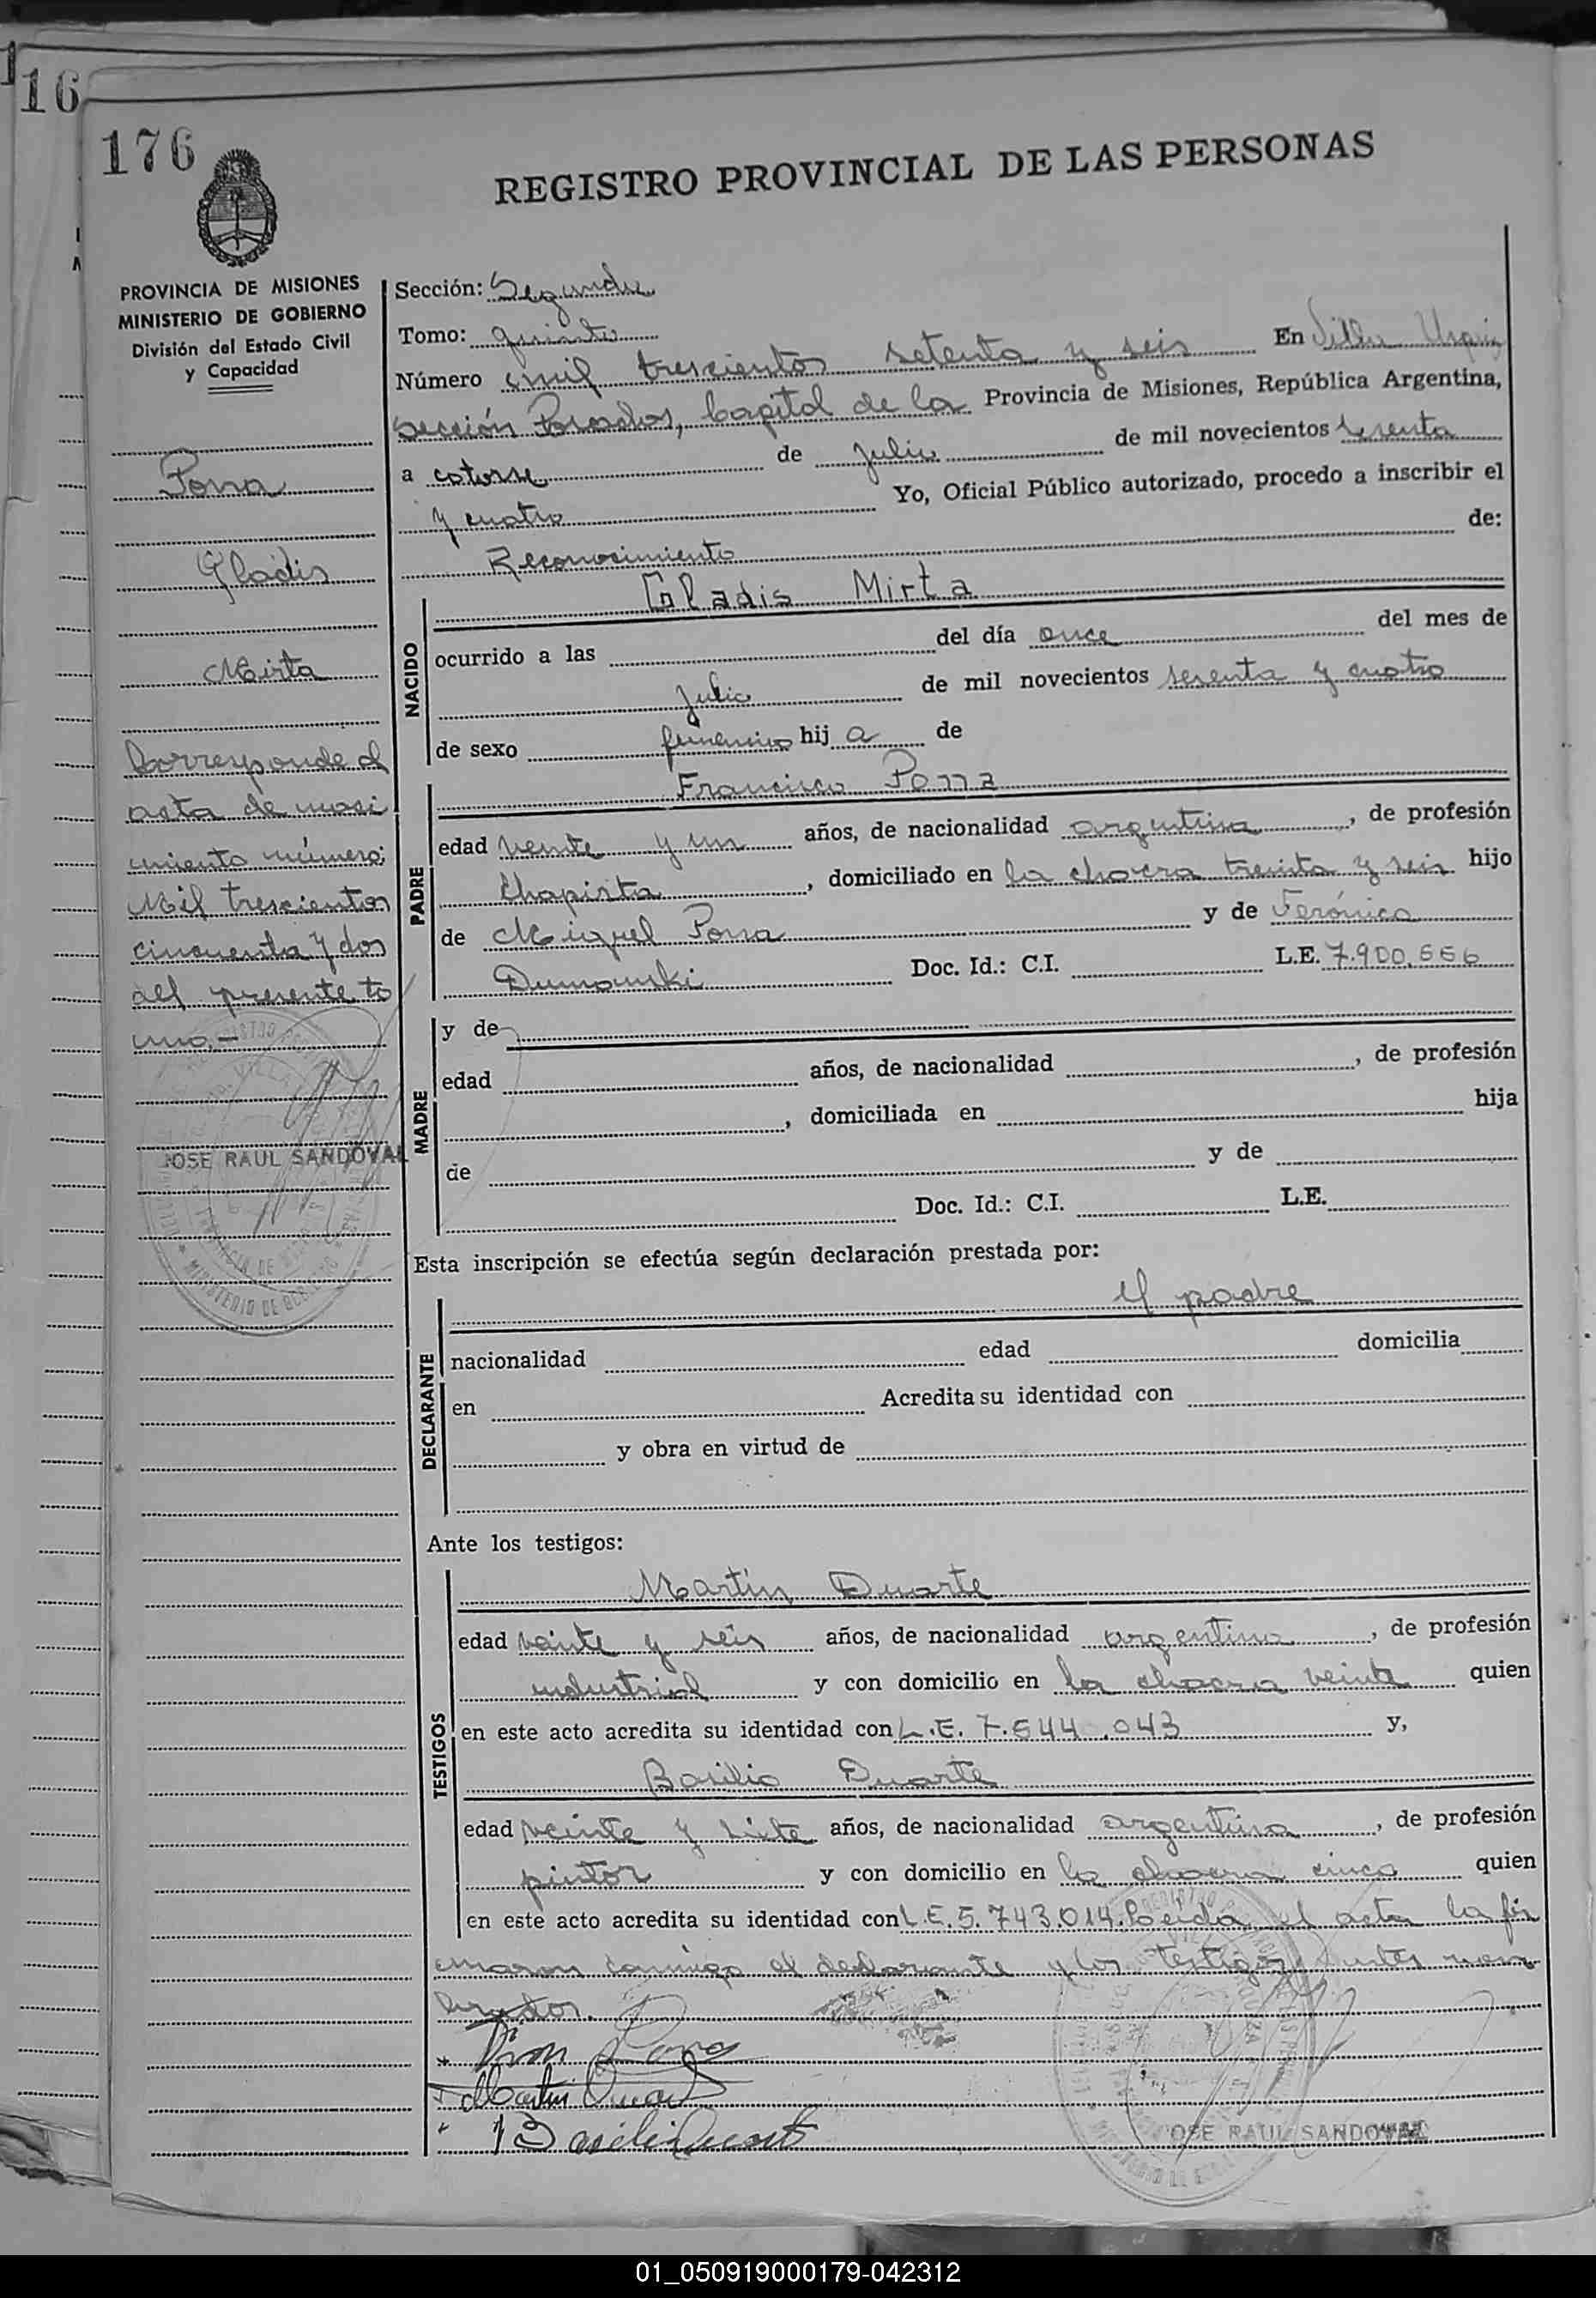 16
176
REGISTRO PROVINCIAL DE LAS PERSONAS
PROVINCIA DE MISIONES
MINISTERIO DE GOBIERNO
División del Estado Civil
y Capacidad
Porra
Gladis
Mirta
Corresponde al
acta de naci
miento número:
Mil trescientos
cincuenta y dos
del presente to
mo.-
JOSE RAUL SANDOVAL
Sección: Segunda
Tomo: quinto
Número mil trescientos setenta y seis En Villa Urquiz
sección Posadas, Capital de la Provincia de Misiones, República Argentina,
a catorse de Julio de mil novecientos sesenta
y cuatro Yo, Oficial Público autorizado, procedo a inscribir el
Reconocimiento de:
NACIDO
Gladis Mirta
ocurrido a las del día once del mes de
Julio de mil novecientos sesenta y cuatro
de sexo femenino hij a de
PADRE
Francisco Porra
edad veinte y un años, de nacionalidad argentina, de profesión
Chapista, domiciliado en la chacra treinta y seis hijo
de Miguel Porra y de Verónica
Doc. Id.: C.I. L.E. 7.900.556
MADRE
y de
edad años, de nacionalidad , de profesión
, domiciliada en hija
de y de
Doc. Id.: C.I. L.E.
Esta inscripción se efectúa según declaración prestada por:
DECLARANTE
el padre
nacionalidad edad domicilia
en Acredita su identidad con
y obra en virtud de
Ante los testigos:
TESTIGOS
Martin Duarte
edad veinte y seis años, de nacionalidad argentina, de profesión
industrial y con domicilio en la chacra veinte quien
en este acto acredita su identidad con L.E. 7.544.043 y,
Basilio Duarte
edad veinte y siete años, de nacionalidad argentina, de profesión
pintor y con domicilio en la chacra cinco quien
en este acto acredita su identidad con L.E. 5.743.014. Leída el acta la fir
maron conmigo el declarante y los testigos antes nom
brados.
Martin Duarte
Basilio Duarte
JOSE RAUL SANDOVAL
01_050919000179-042312